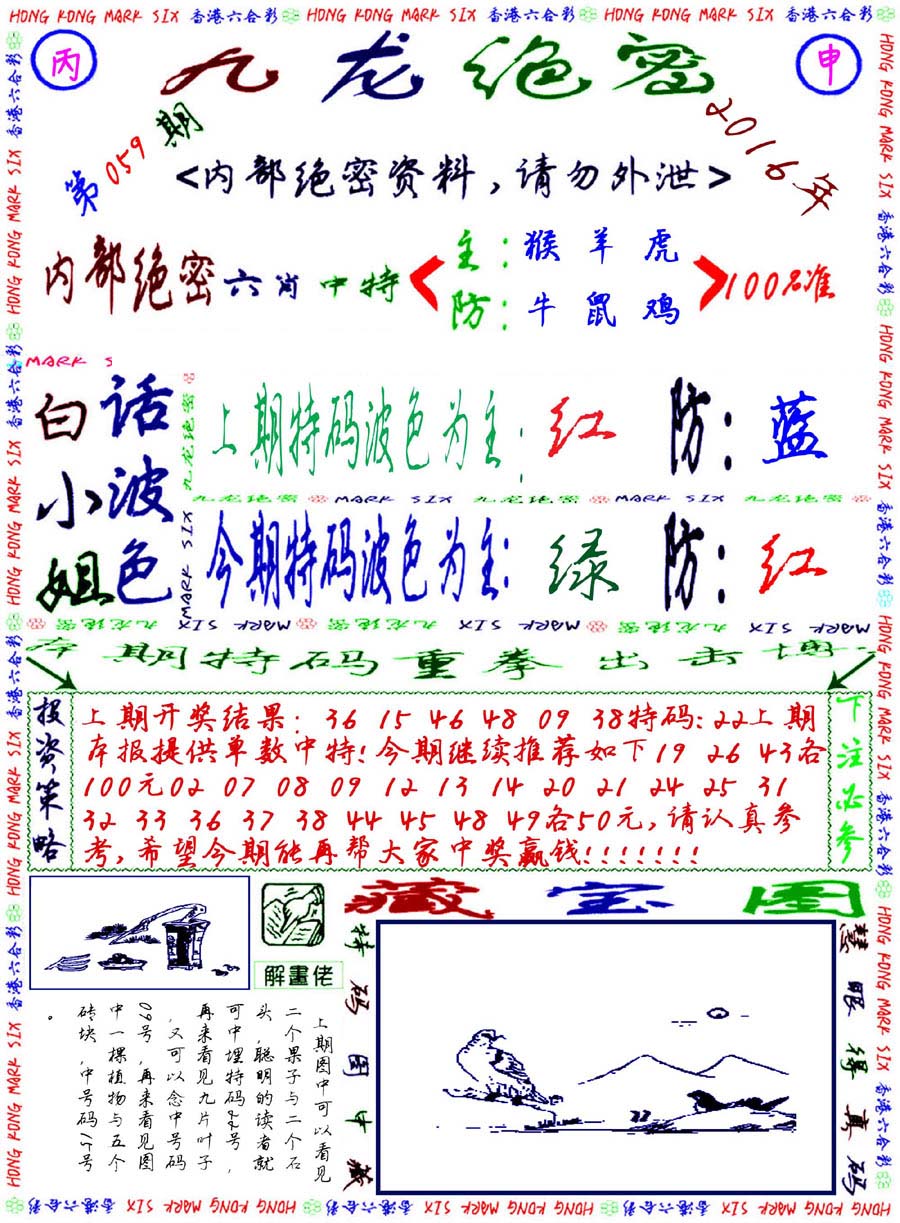 HONG KONG MARK SIX 香港六合彩 HONG KONG MARK SIX 香港六合彩 HONG KONG MARK SIX 香港六合彩
丙
九龙绝密
申
第059期
2016年
<内部绝密资料,请勿外泄>
内部绝密六肖中特
主:猴羊虎
防:牛鼠鸡
100%准
MARK S
白话
小波
姐色
上期特码波色为主:红 防:蓝
九龙绝密 MARK SIX 九龙绝密 MARK SIX 九龙绝密
今期特码波色为主:绿 防:红
九龙绝密 MARK SIX
MARK SIX 九龙绝密 MARK SIX 九龙绝密 MARK SIX 九龙绝密 MARK SIX 九龙绝密
本期特码重拳出击博
投资策略
上期开奖结果: 36 15 46 48 09 38特码:22上期
本报提供单数中特!今期继续推荐如下19 26 43各
100元02 07 08 09 12 13 14 20 21 24 25 31
32 33 36 37 38 44 45 48 49各50元,请认真参
考,希望今期能再帮大家中奖赢钱!!!!!!!
下注必参
藏宝图
解畫佬
上期图中可以看见
二个果子与二个石
头,聪明的读者就
可中埋特码22号,
再来看见九片叶子
,又可以念中号码
09号,再来看见图
中一棵植物与五个
砖块,中号码15号
。
特码图中藏
慧眼得真码
HONG KONG MARK SIX 香港六合彩 HONG KONG MARK SIX 香港六合彩 HONG KONG MARK SIX 香港六合彩